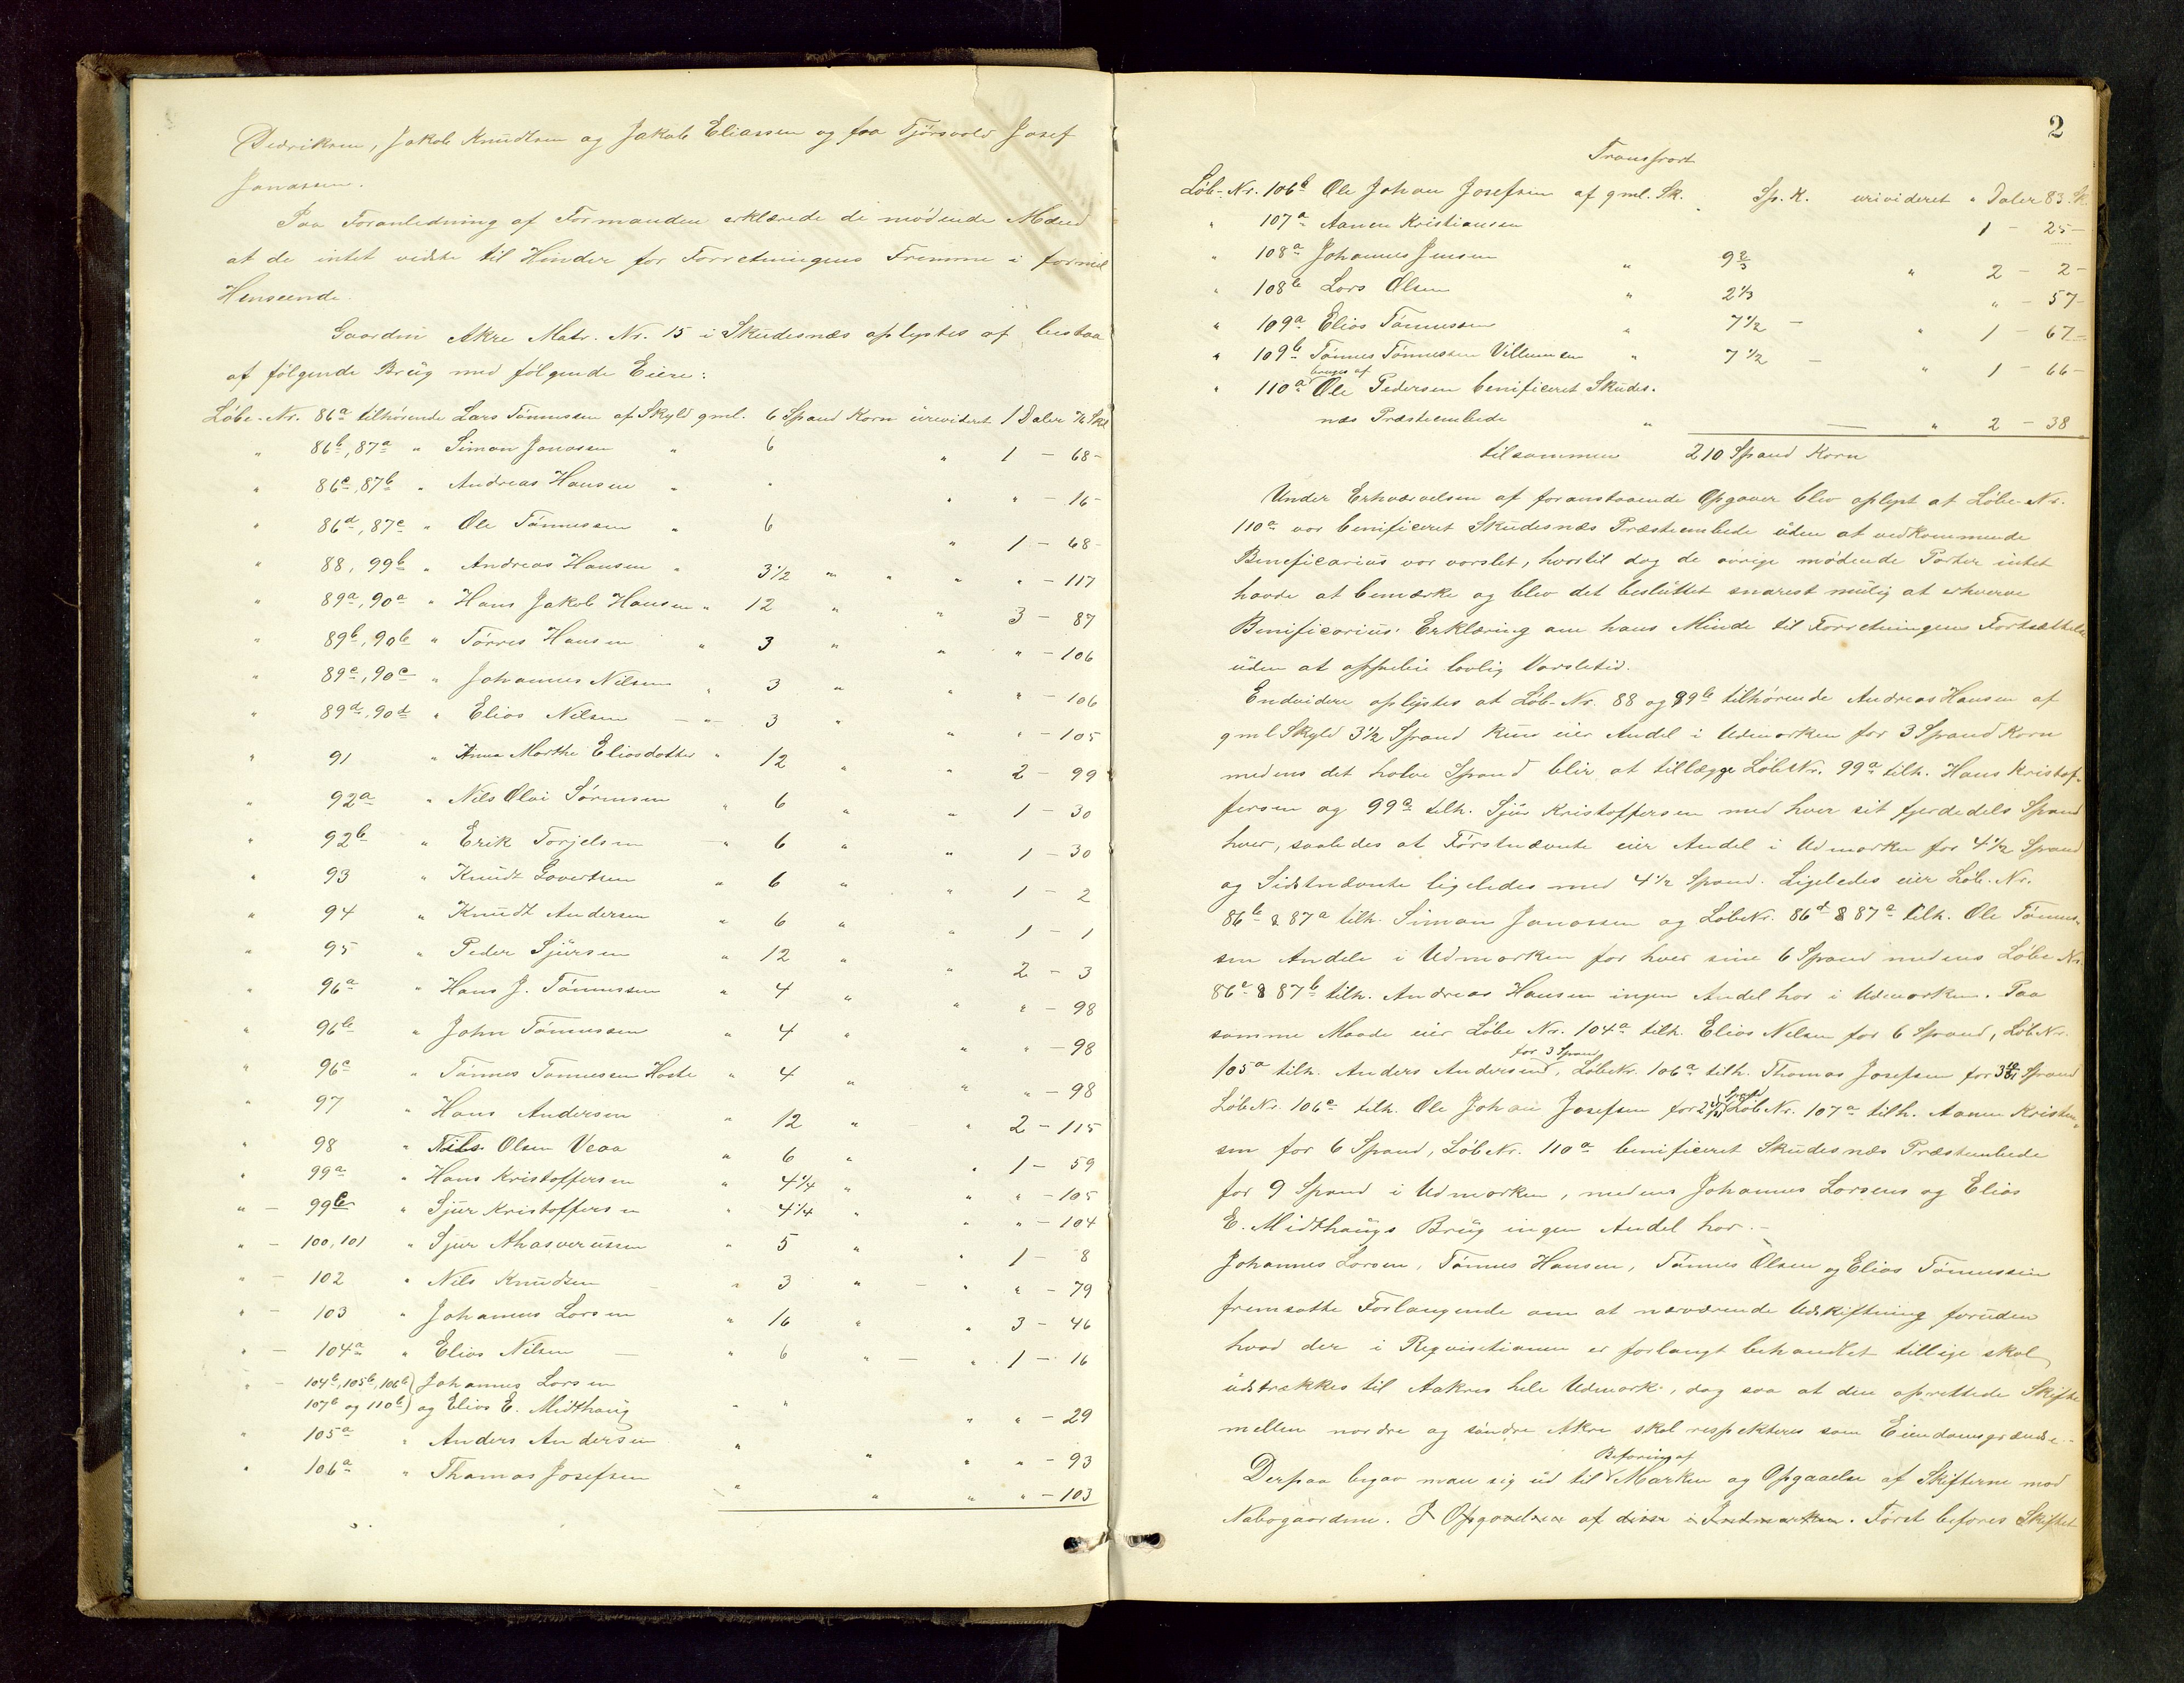 Dedriksen, Jakob Knudtsen og Jakob Eliassen og fra Tjøsvold Josef
Jonassen.
Paa Foranledning af Formanden erklærede de mødende Mænd
at de intet vidste til Hinder for Forretningens Fremme i formel
Henseende.
Gaarden Akre Matr. Nr. 15 i Skudesnæs oplystes at bestaa
af følgende Brug med følgende Eiere:
Løbe-Nr. 86a tilhørende Lars Tønnessen af Skyld gml. 6 Spand Korn urevideret 1 Daler Skl
" 86b, 87a " Simon Jonassen " 6 " 1 - 68 -
" 86c, 87b " Andreas Hansen " " " " - 16 -
" 86d, 87c " Ole Tönnessen " 6 " 1 - 68 -
" 88, 99b " Andreas Hansen " 3 1/2 " " " " - 117
" 89a, 90a " Hans Jakob Hansen " 12 " " 3 - 87
" 89b, 90b " Törres Hansen " 3 " " " - 106
" 89c, 90c " Johannes Nilsen " 3 " " " - 106
" 89d, 90d " Elias Nilsen - " - 3 " " " - 105
" 91 " Anna Marthe Eliasdotter " 12 " " 2 - 99
" 92a " Nils Olai Sörensen " 6 " " 1 - 30
" 92b " Erik Torjelsen " 6 " " 1 - 30
" 93 " Knudt Govertsen " 6 " " 1 - 2
" 94 " Knudt Andersen " 6 " " 1 - 1
" 95 " Peder Sjursen " 12 " " 2 - 3
" 96a " Hans J. Tönnessen " 4 " " " - 98
" 96b " John Tönnessen " 4 " " " - 98
" 96c " Tönnes Tönnesen Hoske " 4 " " " - 98
" 97 " Hans Andersen " 12 " - " 2 - 115
" 98 " Nils Olsen Veaa " 6 " " 1 - 59
" 99a " Hans Kristoffersen " 4 1/4 " " " - 105
" - 99c " Sjur Kristoffersen " 4 1/4 " " " - 104
" - 100, 101 " Sjur Ahasverussen " 5 " " 1 - 8
" - 102 " Nils Knudsen - " 3 " - " " - 79
" - 103 " Johannes Larsen " 16 " " 3 - 46
" - 104a " Elias Nilsen - " 6 " - " 1 - 16
" - 104b, 105b, 106b) Johannes Larsen
107b og 110b) og Elias E. Midthaug " " " " - 29
" 105a " Anders Andersen " " " " - 93
" 106a " Thomas Josefsen " " " " - 103
2
Transport
Løb-Nr. 106b Ole Johan Josefsen af gml. Sk. Sp. K. urevideret " Daler 83 Sk
" 107a Aanen Kristiansen 1 - 25 -
" 108a Johannes Jensen " 9 2/3 " 2 - 2 -
" 108b Lars Olsen " 2 1/3 " - 57 -
" 109a Elias Tönnessen " 7 1/2 - " 1 - 67 -
" 109b Tönnes Tönnessen Villumsen " 7 1/2 - " 1 - 66 -
bruges af
" 110a Ole Pedersen benificeret Skudes-
næs Præsteembede " - " 2 - 38
tilsammen 210 Spand Korn
Under Erhvervelsen af foranstaaende Opgaver blev oplyst at Løbe-Nr.
110a var benificeret Skudesnæs Præsteembede uden at vedkommende
Beneficarius var varslet, hvortil dog de øvrige mødende Parter intet
havde at bemærke og blev det besluttet snarest mulig at erhverve
Benificarius' Erklæring om hans Minde til Forretningens Fortsættelse
uden at oppebie lovlig Varsletid.
Endvidere oplystes at Løb-Nr. 88 og 99b tilhørende Andreas Hansen af
gml Skyld 3 1/2 Spand kun eier Andel i Udmarken for 3 Spand Korn
medens det halve Spand blir at tillægge LøbNr. 99a tilh. Hans Kristof-
fersen og 99a tilh. Sjur Kristoffersen med hver sit fjerdedels Spand
hver, saaledes at Førstnævnte eier Andel i Udmarken for 4 1/2 Spand
og Sidstnævnte ligeledes med 4 1/2 Spand. Ligeledes eier Løb-Nr.
86b & 87a tilh. Simon Jonassen og LøbeNr. 86d & 87a tilh. Ole Tönnes-
sen Andele i Udmarken for hver sine 6 Spand medens Løbe Nr.
86c & 87b tilh. Andreas Hansen ingen Andel har i Udmarken. Paa
samme Maade eier Løbe Nr. 104a tilh. Elias Nilsen for 6 Spand, LøbNr.
for 3 Spand
105a tilh. Anders Andersen, LøbeNr. 106a tilh. Thomas Josefsen for Spand
LøbNr. 106c tilh. Ole Johan Josefsen for LøbNr. 107a tilh. Aanen Kristian-
sen for 6 Spand, LøbNr. 110a benificeret Skudesnæs Præsteembede
for 9 Spand i Udmarken, medens Johannes Larsens og Elias
E. Midthaugs Brug ingen Andel har. -
Johannes Larsen, Tönnes Hansen, Tönnes Olsen og Elias Tönnessen
fremsatte Forlangende om at nærværende Udskiftning foruden
hvad der i Reqvisitionen er forlangt behandlet tillige skal
udstrækkes til Aakres hele Udmark, dog saa at den oprettede Skifte
mellem nordre og söndre Akre skal respekteres som Eiendomsgrændse. -
Befaring af
Derpaa begav man sig ud til Marken og Opgaaelse af Skifterne mod
Nabogaardene. I Opgaaelsen af disse i Indmarken. Først befares Skiftet